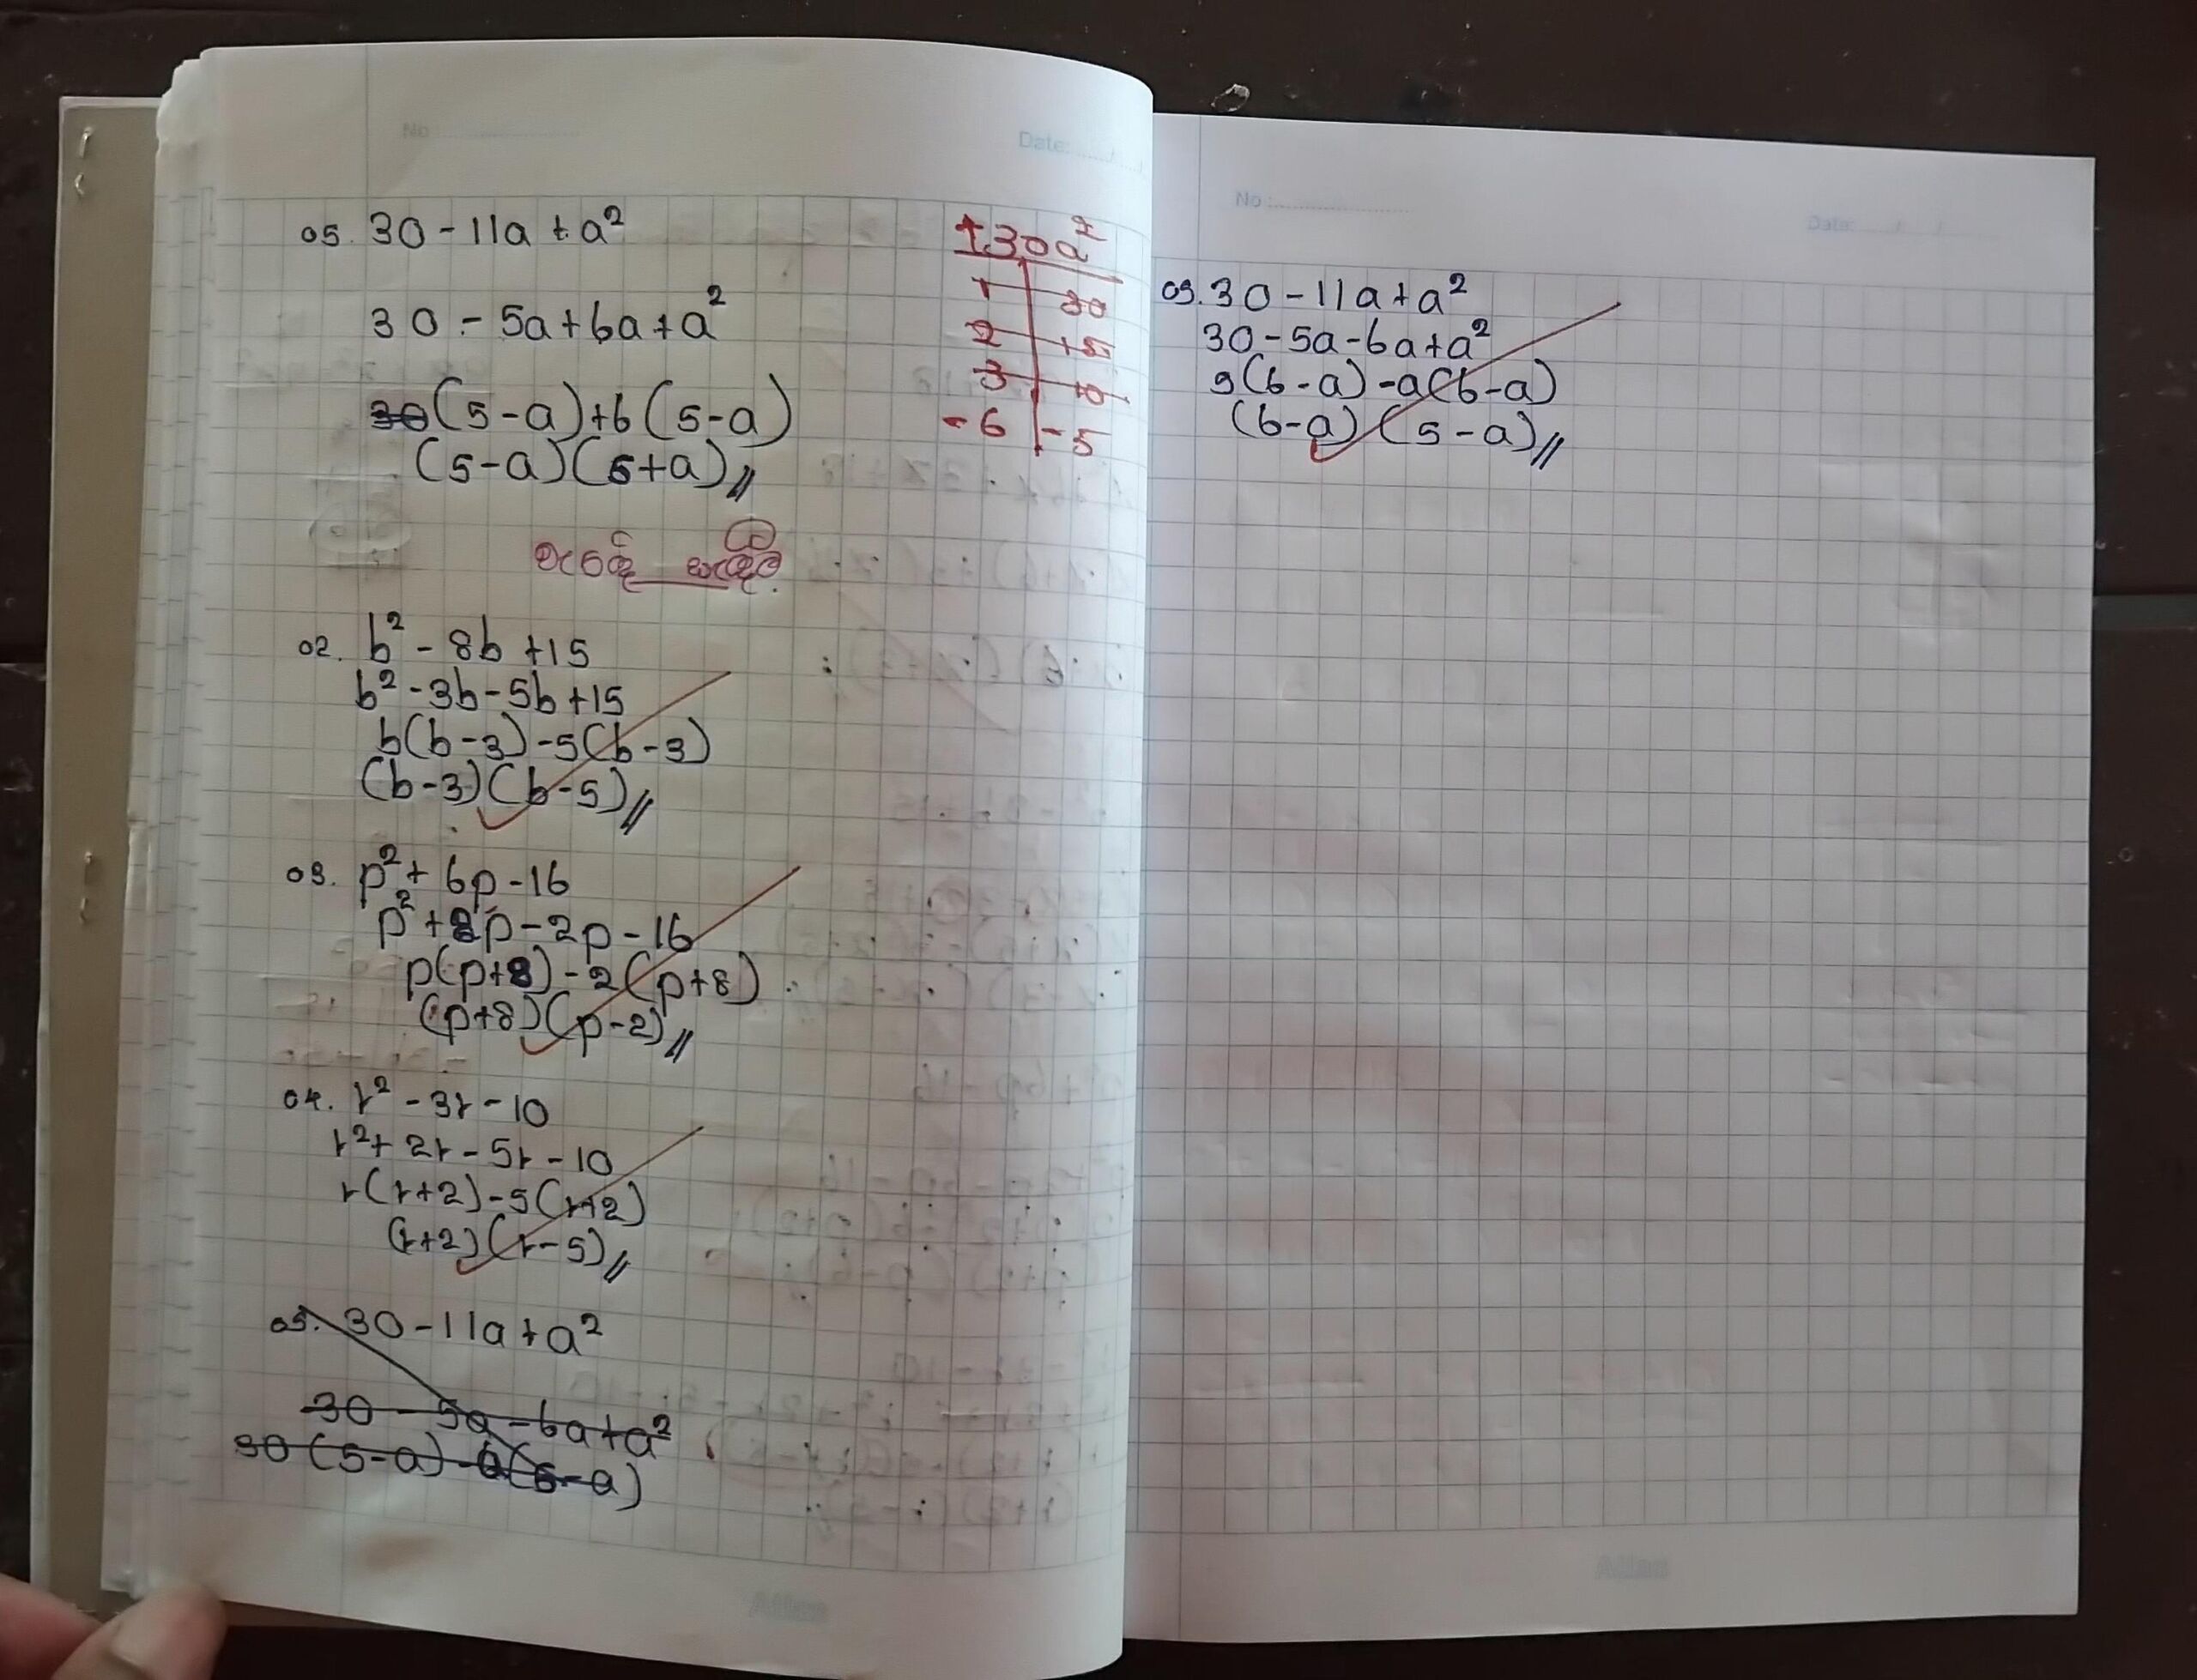 No :
Date:
05. 30 - 11a + a²
30 - 5a + 6a + a²
30(5-a)+6(5-a)
(5-a)(5+a)//
+30a²
1 | 30
2 | 15
3 | 10
-6 | -5
02. b² - 8b + 15
b² - 3b - 5b + 15
b(b-3) - 5(b-3)
(b-3)(b-5)//
03. p² + 6p - 16
p² + 8p - 2p - 16
p(p+8) - 2(p+8)
(p+8)(p-2)//
04. r² - 3r - 10
r² + 2r - 5r - 10
r(r+2) - 5(r+2)
(r+2)(r-5)//
05. 30 - 11a + a²
30 - 5a - 6a + a²
30(5-a) - a(5-a)
Atlas
No :
Date:
05. 30 - 11a + a²
30 - 5a - 6a + a²
5(6-a) - a(6-a)
(6-a)(5-a)//
Atlas